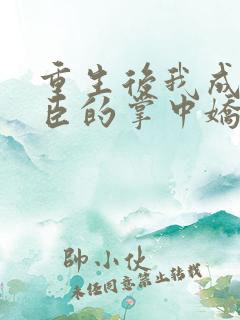 重生後我成
臣的掌中嬌
帥小伙
未經同意禁止轉載